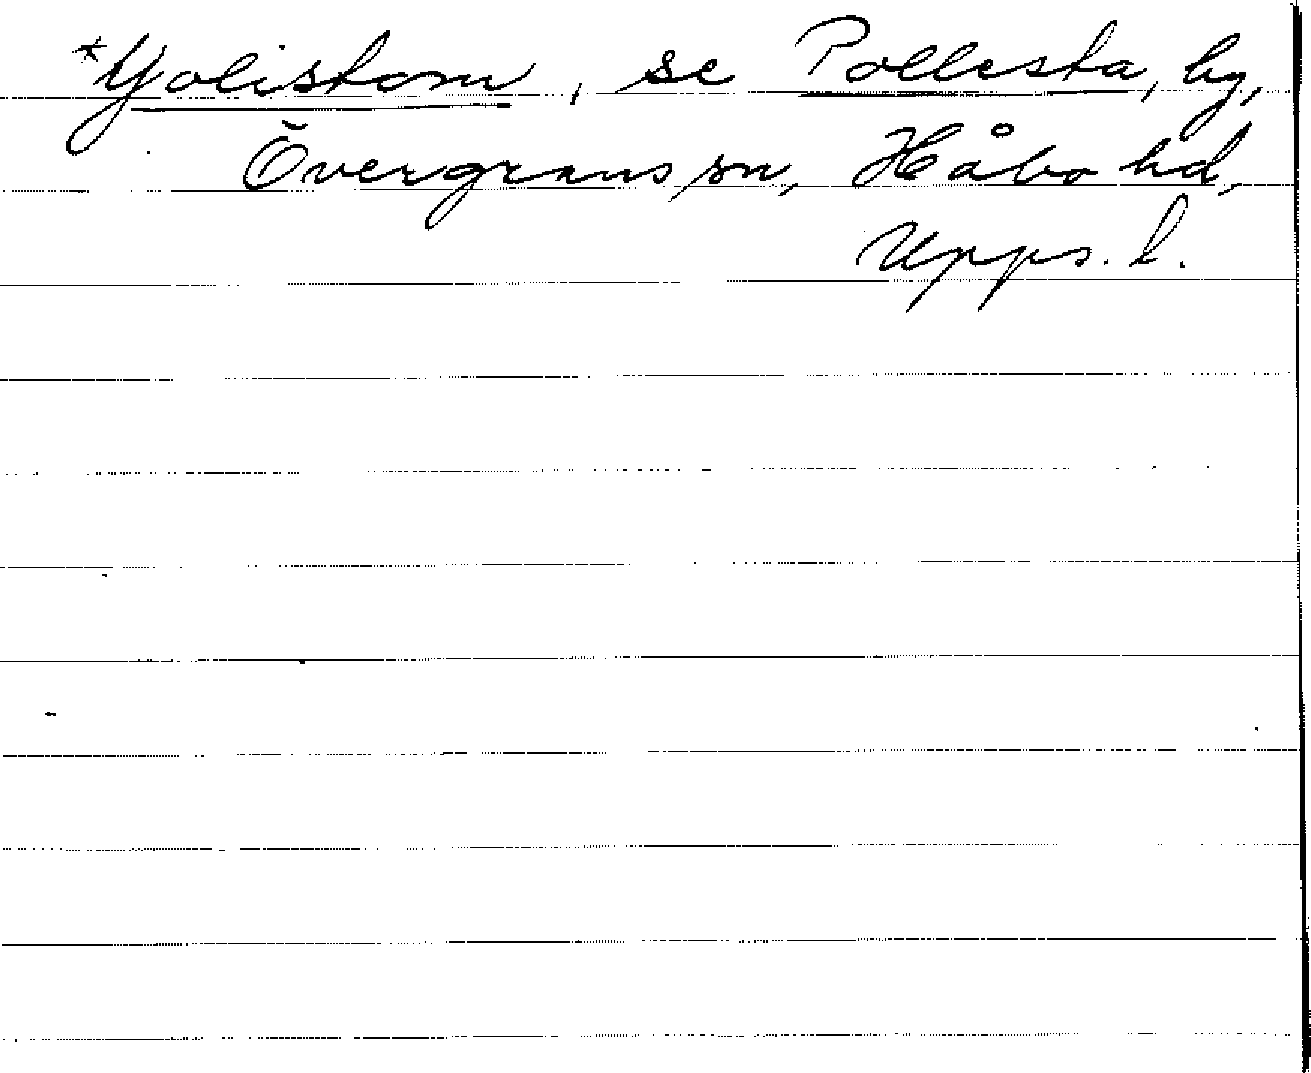 *Yolistom, se Pollesta, by,
Övergrans sn, Håbo hd,
Upps. l.